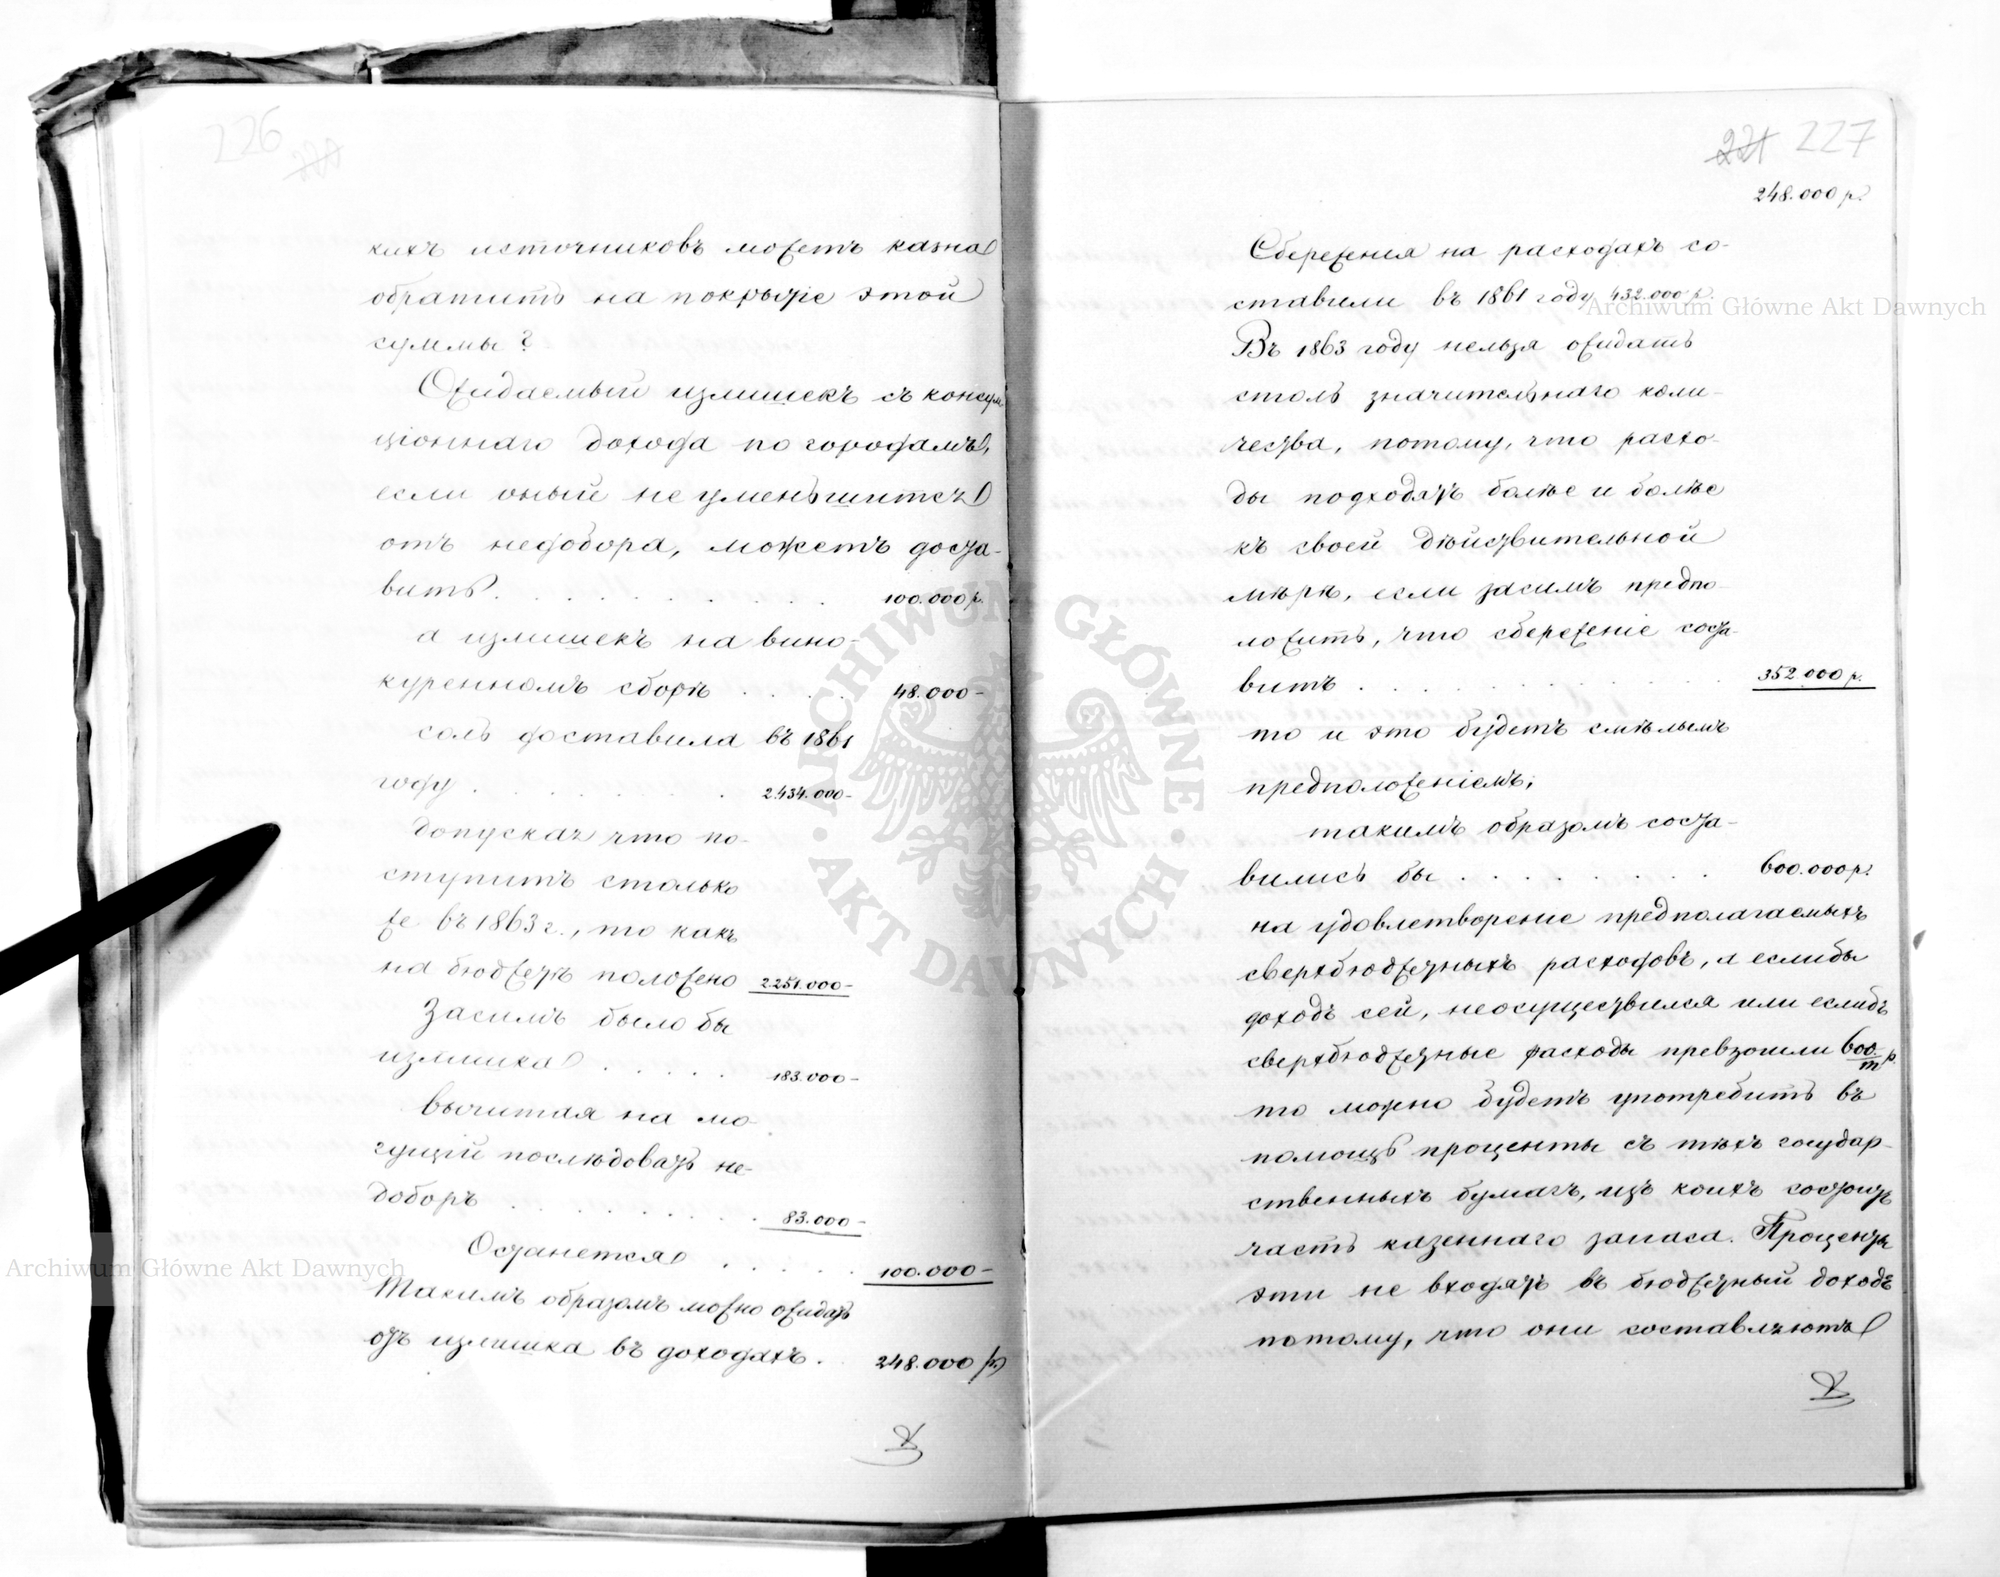 226
221
кихъ источниковъ можетъ казна
обратить на покрытіе этой
суммы?
Ожидаемый излишекъ съ консум
ціоннаго дохода по городамъ,
если оный не уменьшится
отъ недобора, можетъ доста-
вить . . . . . . . . . 100.000 р.
а излишекъ на вино-
куренномъ сборѣ . . . . 48.000 –
соль доставила въ 1861
году . . . . . . . 2.434.000 –
Допуская что по-
ступитъ столько
же въ 1863 г., то какъ
на бюджетъ положено 2.251.000 –
Засимъ было бы
излишка . . . . . 183.000 –
Вычитая на мо-
гущій послѣдовать не-
доборъ . . . . . . . . 83.000 –
Останется . . . . . 100.000 –
Такимъ образомъ можно ожидать
отъ излишка въ доходахъ . . 248.000 р.
221 227
248.000 р.
Сбереженія на расходахъ со-
ставили въ 1861 году 432.000 р.
Въ 1863 году нельзя ожидать
столь значительнаго коли-
чества, потому, что расхо-
ды подходятъ болѣе и болѣе
къ своей дѣйствительной
мѣрѣ, если засимъ предпо-
ложить, что сбереженіе соста-
витъ . . . . . . . . . . 352.000 р.
то и это будетъ смѣлымъ
предположеніемъ;
такимъ образомъ соста-
вились бы . . . . . . . . 600.000 р.
на удовлетвореніе предполагаемыхъ
сверхбюджетныхъ расходовъ, а еслибы
доходъ сей, неосуществился или еслибъ
сверхбюджетные расходы превзошли 600/m р.
то можно будетъ употребить въ
помощь проценты съ тѣхъ государ-
ственныхъ бумагъ, изъ коихъ состоитъ
часть казеннаго запаса. Проценты
эти не входятъ въ бюджетный доходъ
потому, что они составляютъ
Archiwum Główne Akt Dawnych
Archiwum Główne Akt Dawnych
ARCHIWUM GŁÓWNE · AKT DAWNYCH ·